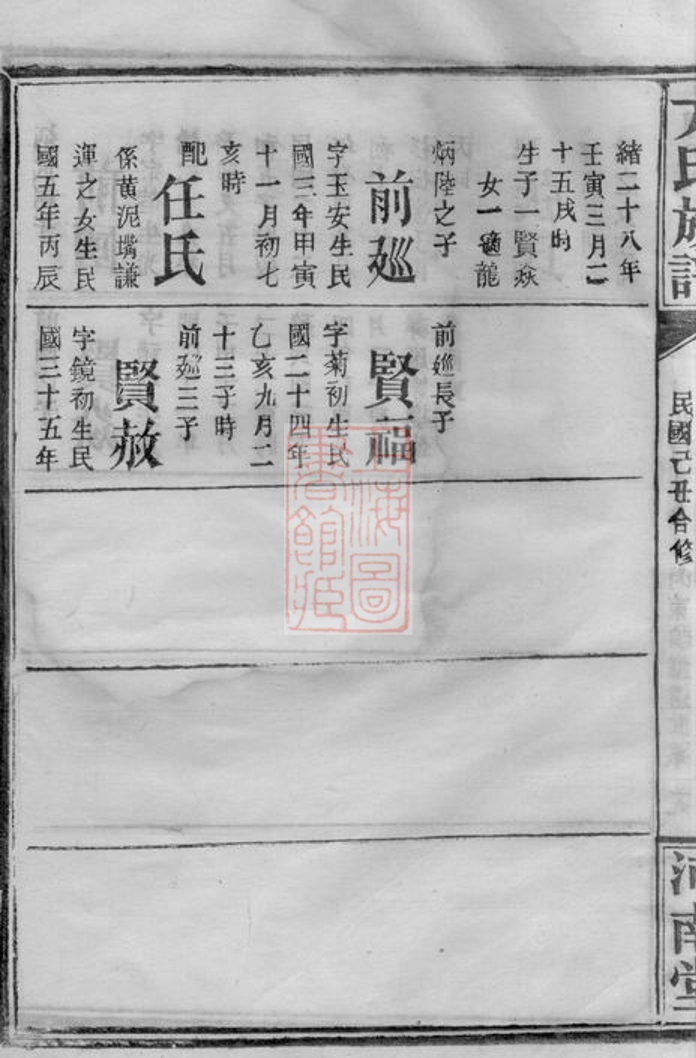 方氏族譜
民國己丑合修
河南堂
緒二十八年
壬寅三月二
十五戌時
生子一賢焱
女一適龍
炳陸之子
前廵
字玉安生民
國三年甲寅
十一月初七
亥時
配
任氏
係黃泥嘴謙
運之女生民
國五年丙辰
前廵長子
賢福
字菊初生民
國二十四年
乙亥九月二
十三子時
前廵三子
賢赦
字鏡初生民
國三十五年
上海圖
書館藏